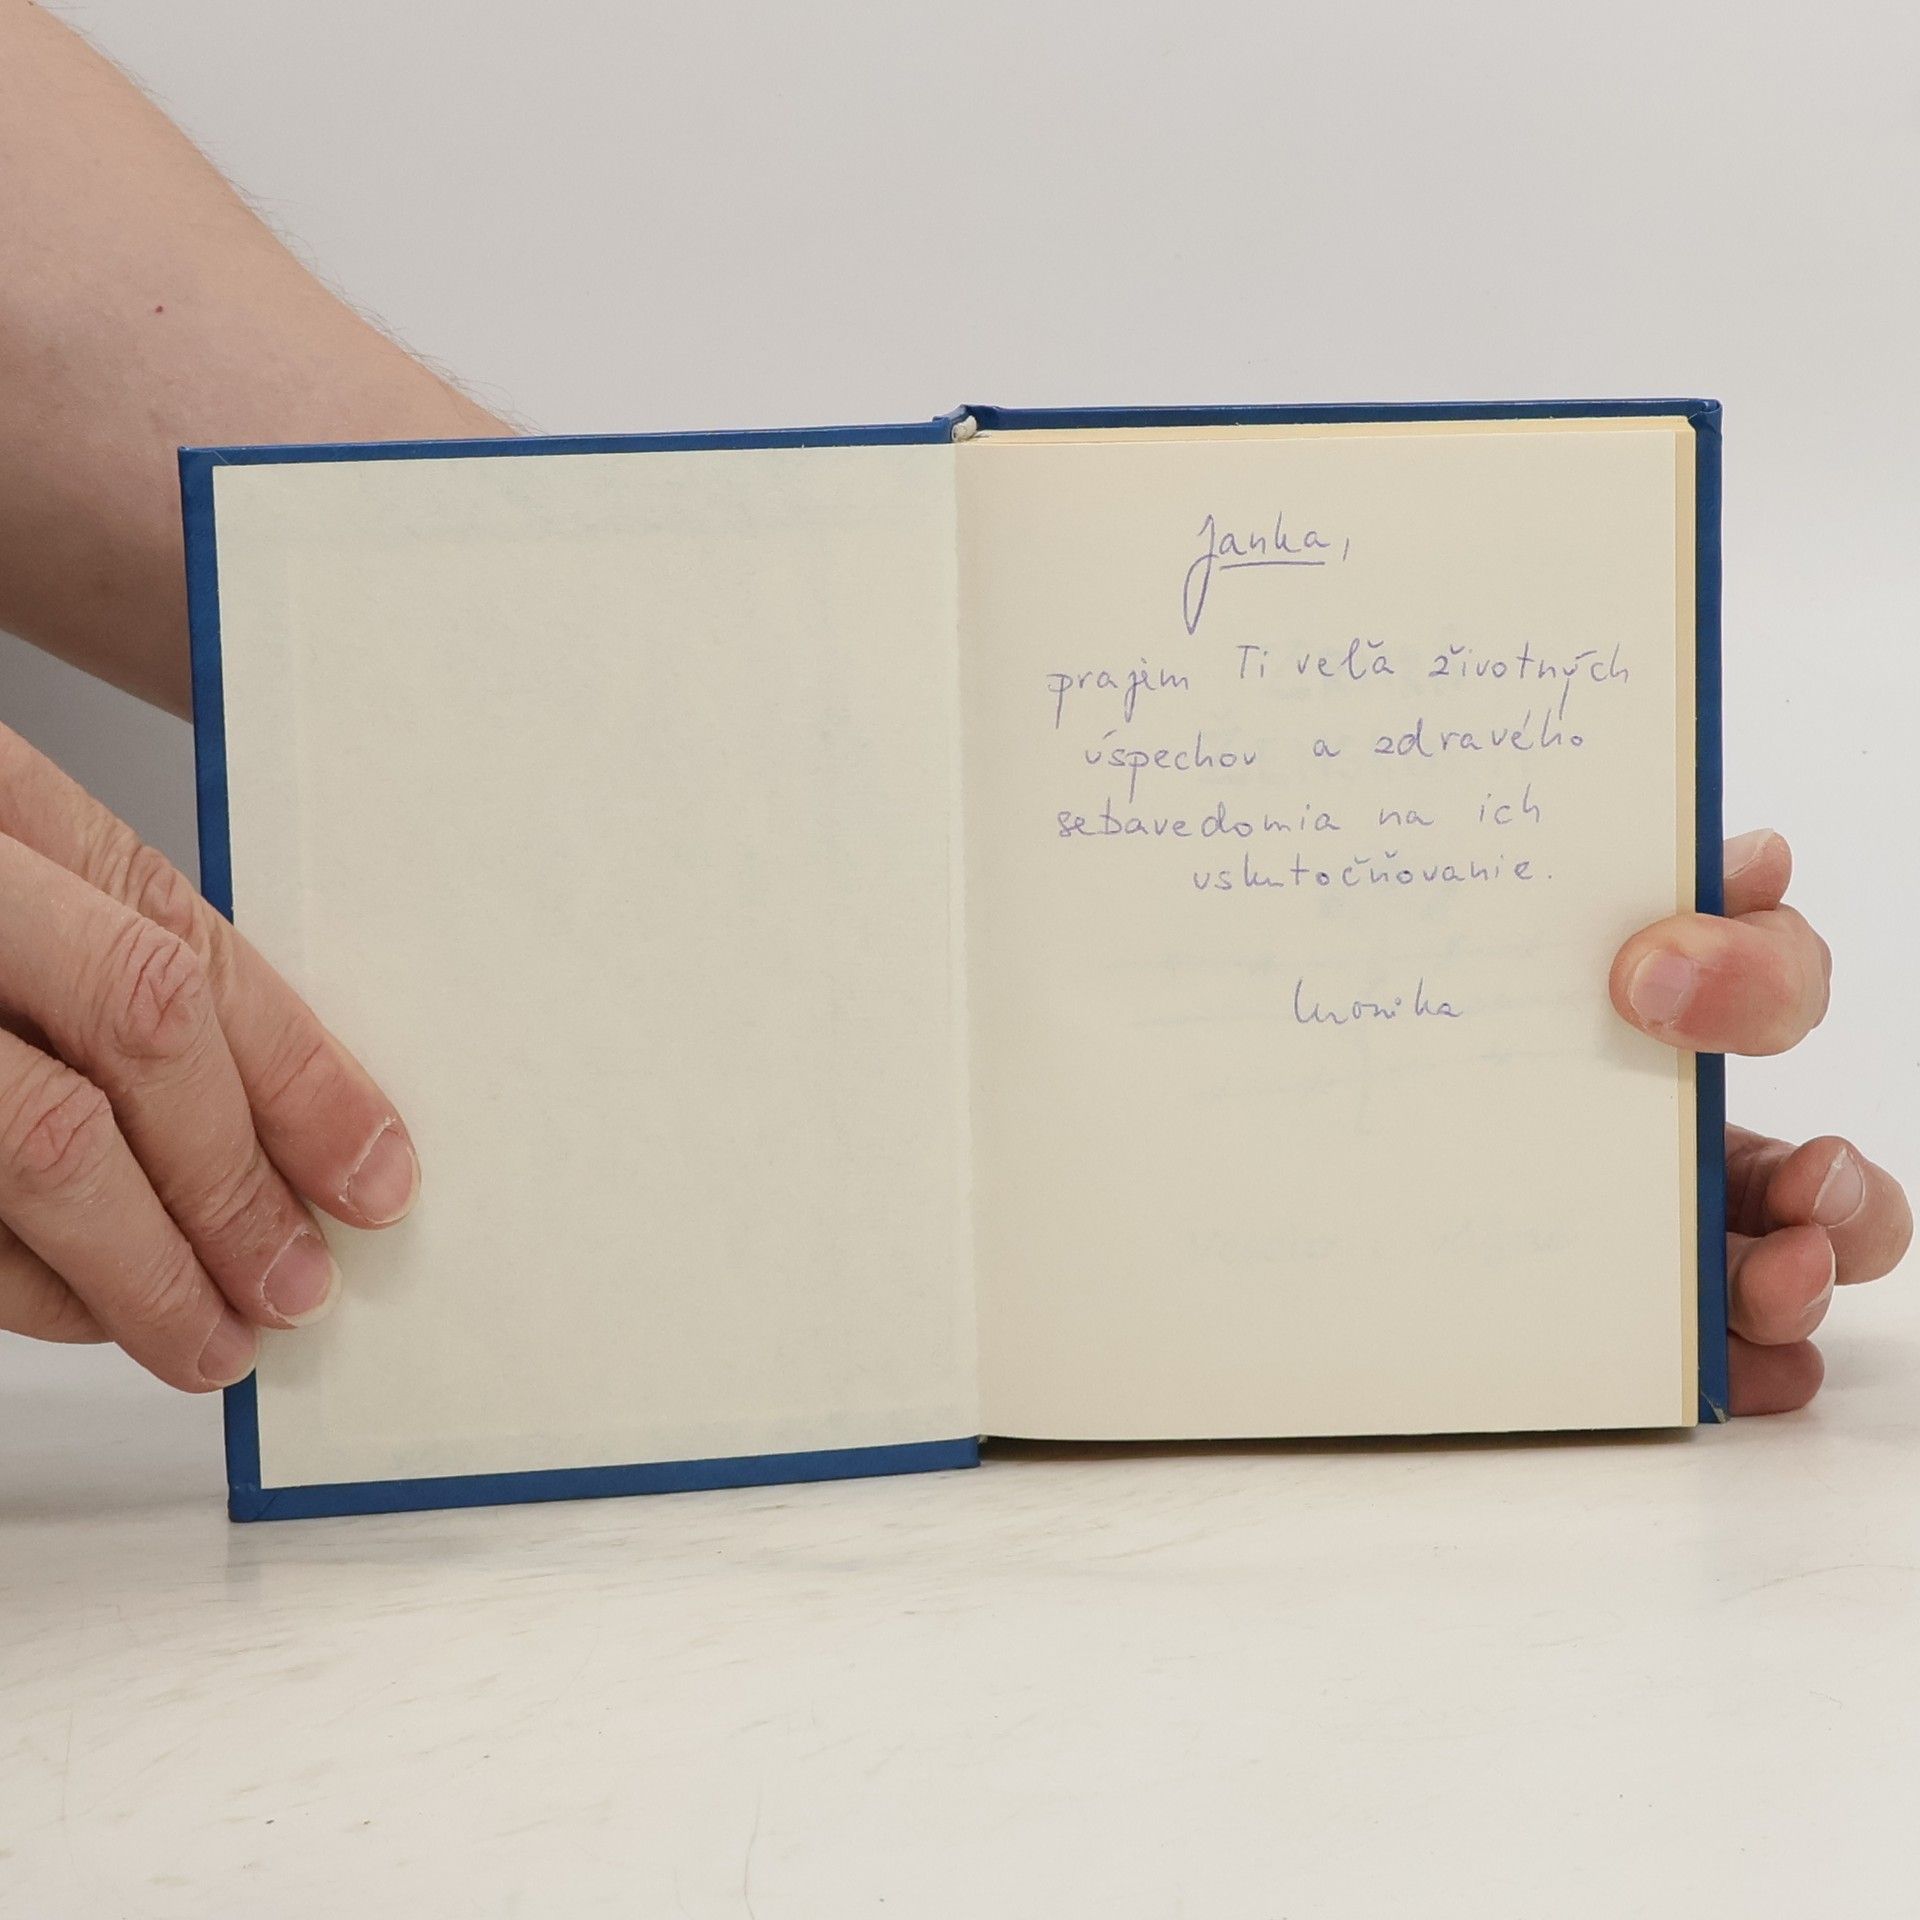 Janka,
prajem Ti veľa životných
úspechov a zdravého
sebavedomia na ich
uskutočňovanie.
Monika